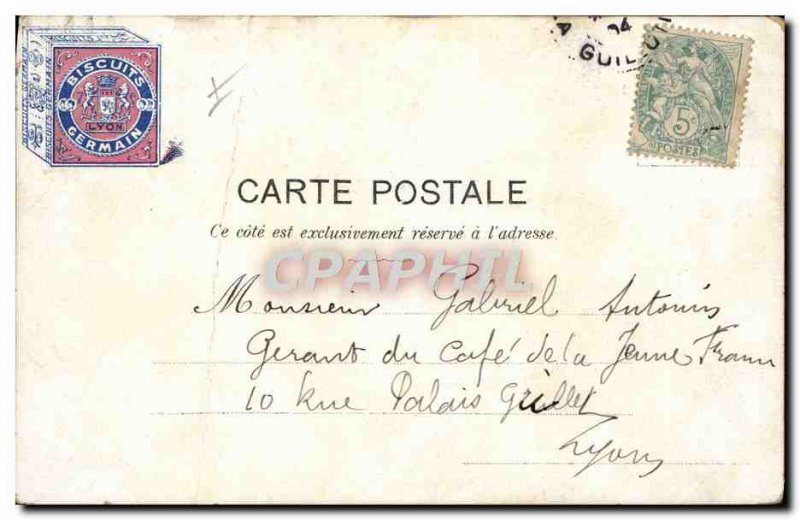 BISCUITS
LYON
GERMAIN
BISCUITS GERMAIN
04
GUILLOTI
5c
POSTES
CARTE POSTALE
Ce côté est exclusivement réservé à l'adresse.
CPAPHIL
Monsieur Gabriel Antonin
Gerant du Café de la Jeune France
10 Rue Palais Grillet
Lyon